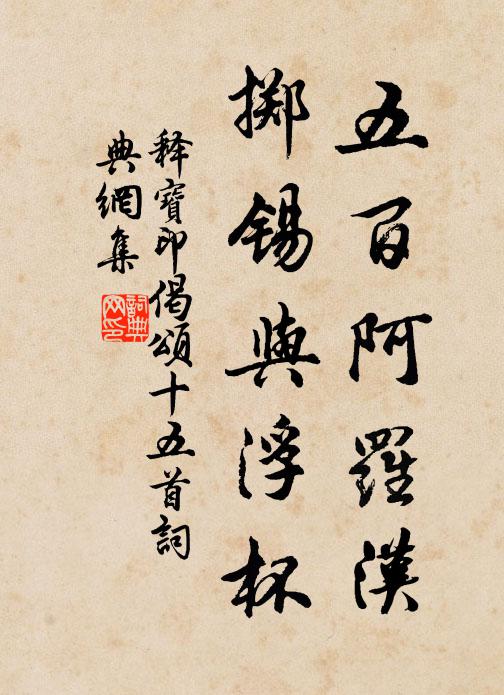 五百阿羅漢
擲錫與浮杯
釋寶印偈頌十五首詞
典網集
詞典网印